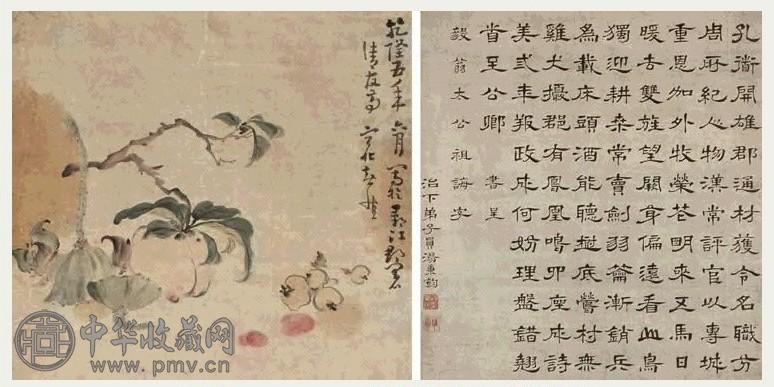 乾隆五年
清友
孔開雄郡通材獲令名職方
周紀心物漢常評官以專城
重恩加外牧榮花明來五馬日
暖去雙旌望身偏遠看山鳥
獨迎耕桑常賣劍羽籥漸銷兵
為載床頭酒能聽底鶯村無
雞犬攝郡有鳳凰鳴座成詩
美弍年報政成何妨理盤錯翹
首至公卿 書呈
毅翁太公祖誨安
治下弟子員
中华收藏网
www.pmv.cn